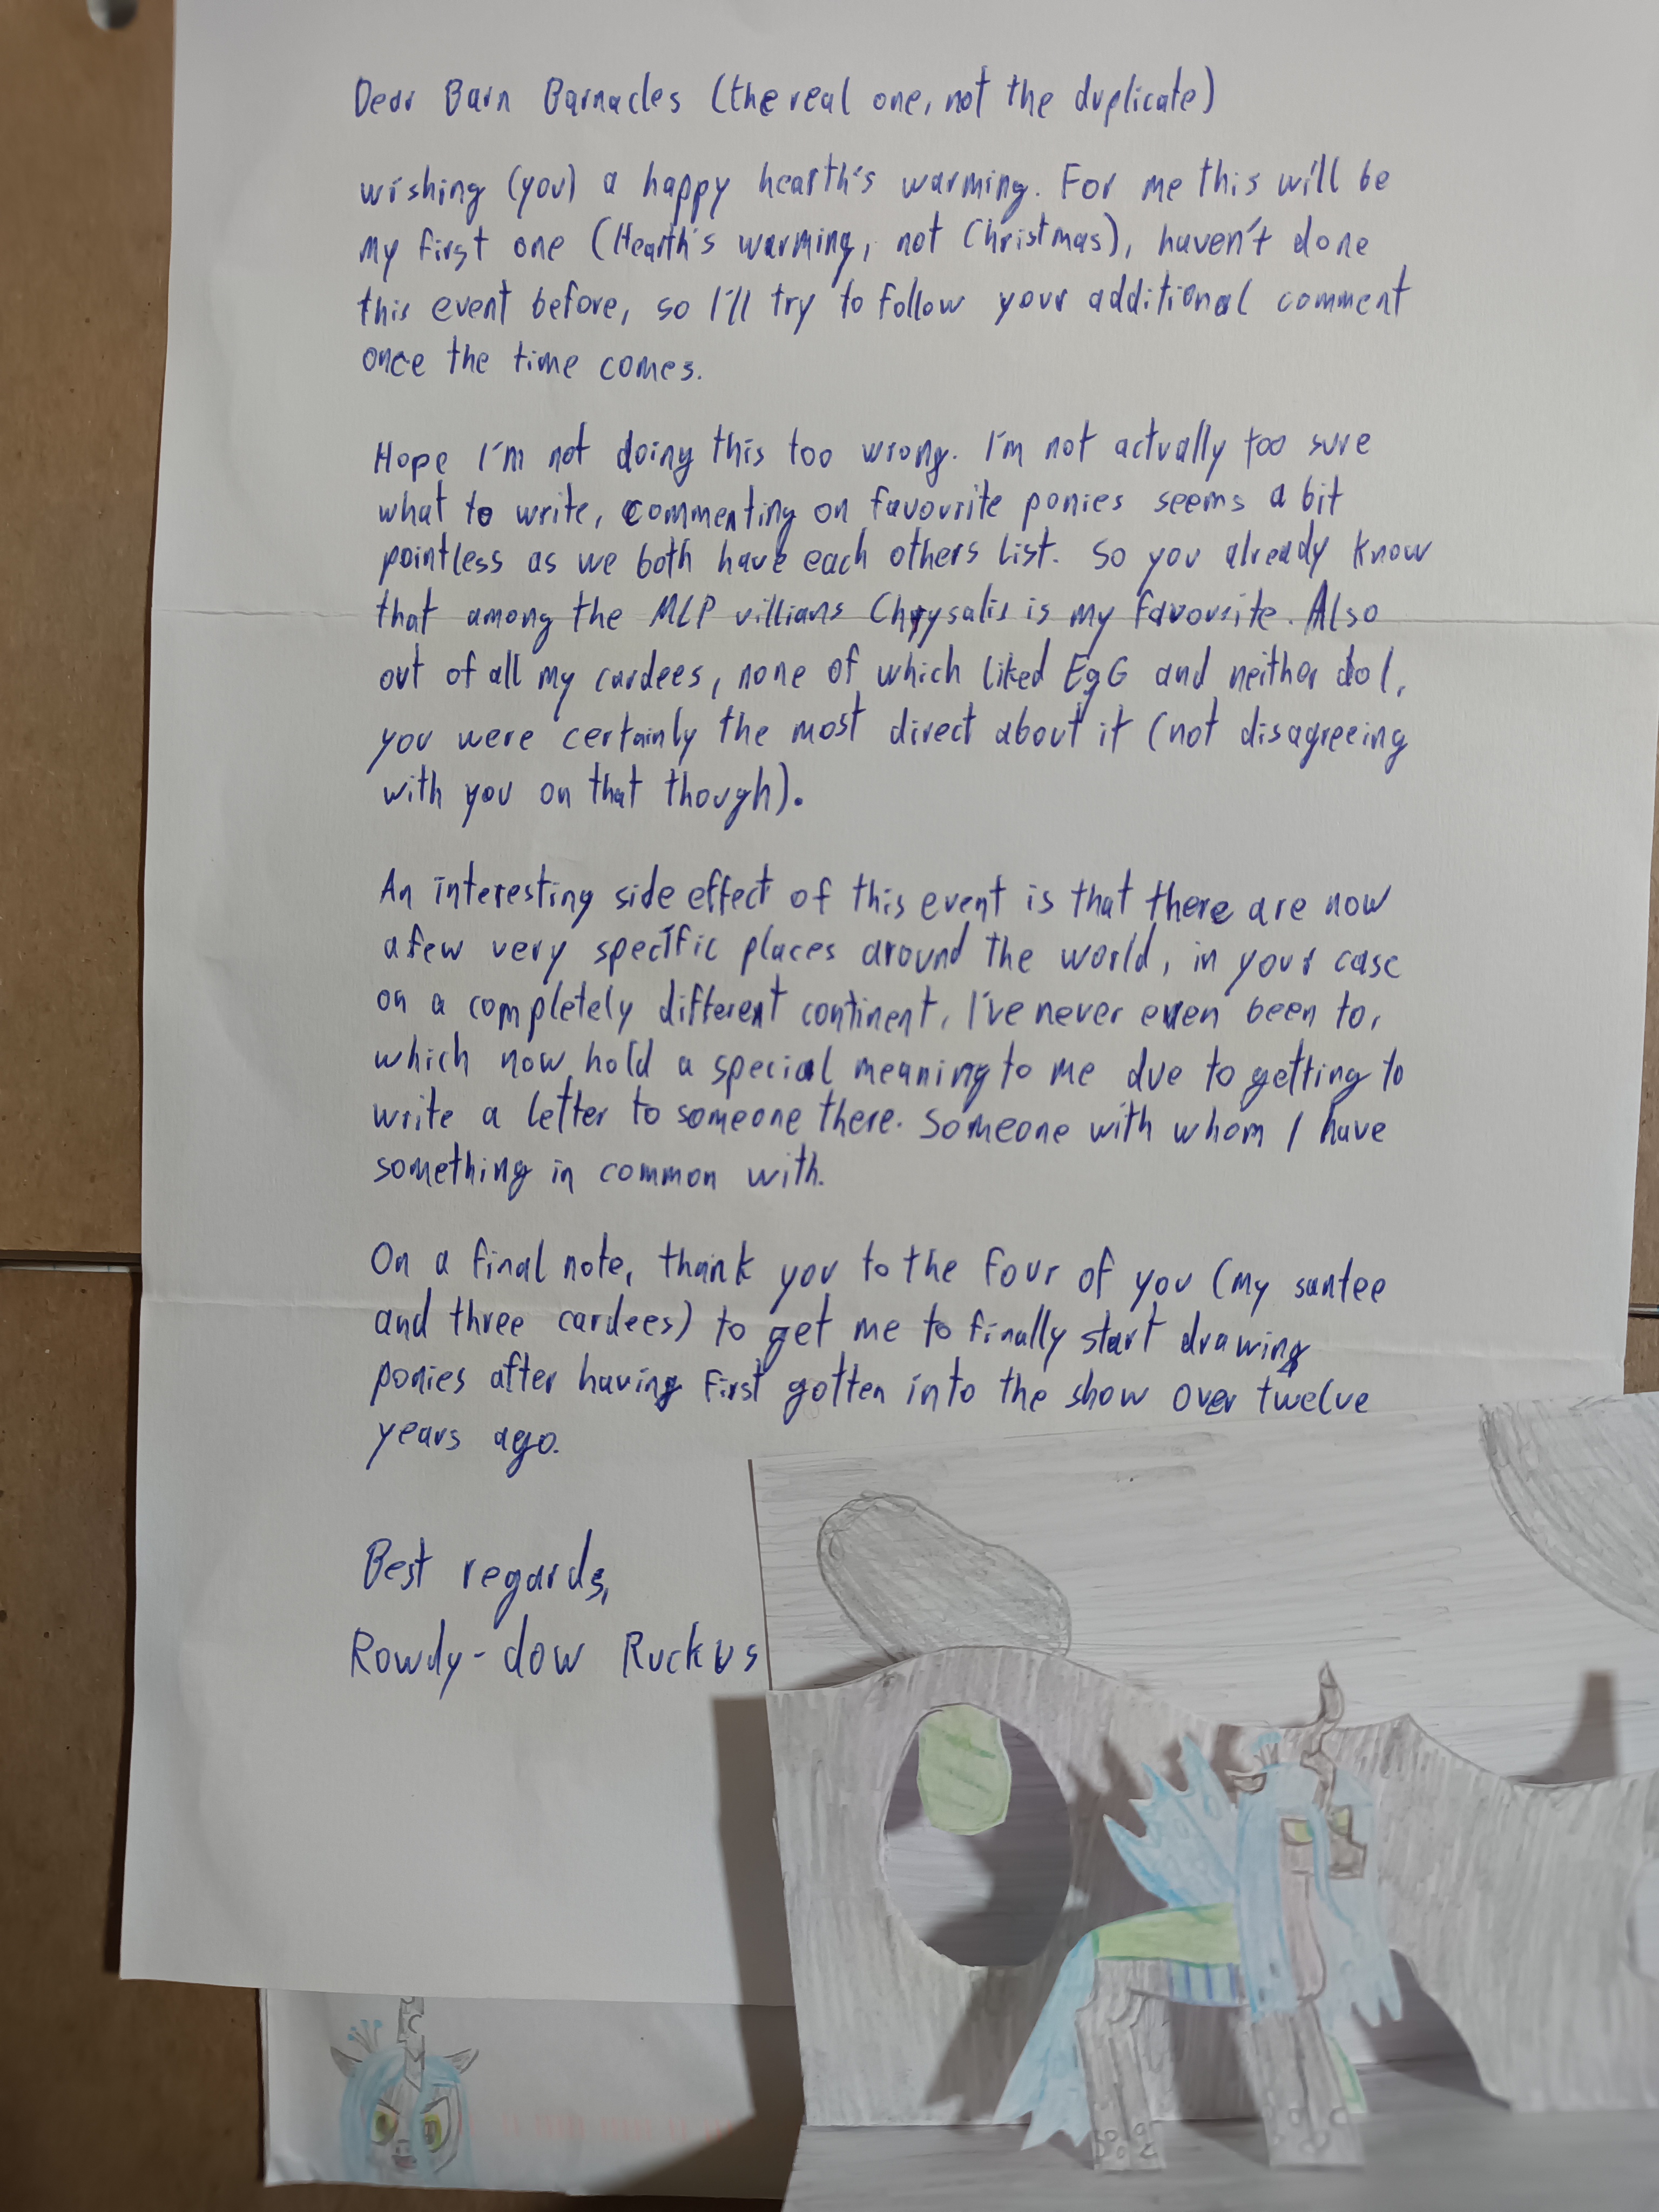 Dear Barn Barnacles (the real one, not the duplicate)
wishing (you) a happy hearth's warming. For me this will be
my first one (Hearth's warming, not Christmas), haven't done
this event before, so I'll try to follow your additional comment
once the time comes.
Hope I'm not doing this too wrong. I'm not actually too sure
what to write, commenting on favourite ponies seems a bit
pointless as we both have each others list. So you already know
that among the MLP villians Chrysalis is my favourite. Also
out of all my cardees, none of which liked EgG and neither do I,
you were certainly the most direct about it (not disagreeing
with you on that though).
An interesting side effect of this event is that there are now
a few very specific places around the world, in your case
on a completely different continent, I've never even been to,
which now hold a special meaning to me due to getting to
write a letter to someone there. Someone with whom I have
something in common with.
On a final note, thank you to the four of you (my santee
and three cardees) to get me to finally start drawing
ponies after having first gotten into the show over twelve
years ago.
Best regards,
Rowdy-dow Ruckus